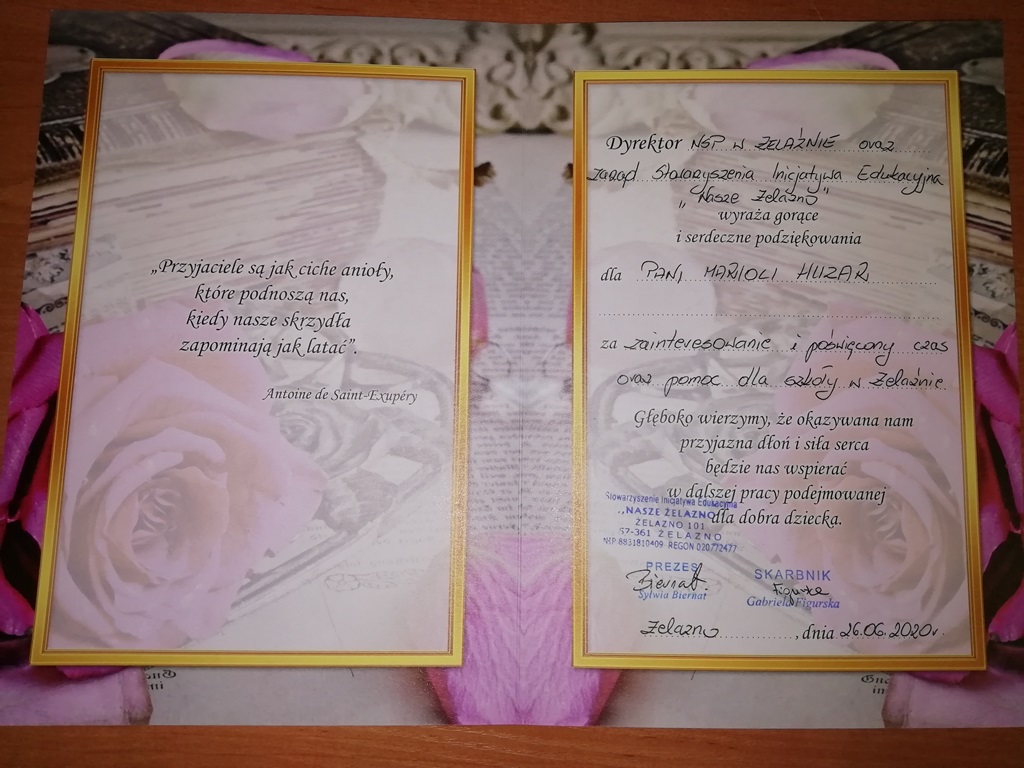 „Przyjaciele są jak ciche anioły,
które podnoszą nas,
kiedy nasze skrzydła
zapominają jak latać”.
Antoine de Saint-Exupéry
Dyrektor NSP w ŻELAŹNIE oraz
zarząd Stowarzyszenia Inicjatywa Edukacyjna
„Nasze Żelazno”
wyraża gorące
i serdeczne podziękowania
dla PANI MARIOLI HUZAR
za zainteresowanie i poświęcony czas
oraz pomoc dla szkoły w Żelaźnie
Głęboko wierzymy, że okazywana nam
przyjazna dłoń i siła serca
będzie nas wspierać
w dalszej pracy podejmowanej
dla dobra dziecka.
Stowarzyszenie Inicjatywa Edukacyjna
„NASZE ŻELAZNO”
ŻELAZNO 101
57-361 ŻELAZNO
NIP 8831810409 REGON 020772477
PREZES
Biernat.
Sylwia Biernat
SKARBNIK
Figurska
Gabriela Figurska
Żelazno, dnia 26.06.2020r.